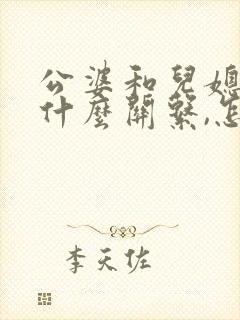 公婆和兒媳
什麼關繫,怎
李天佐